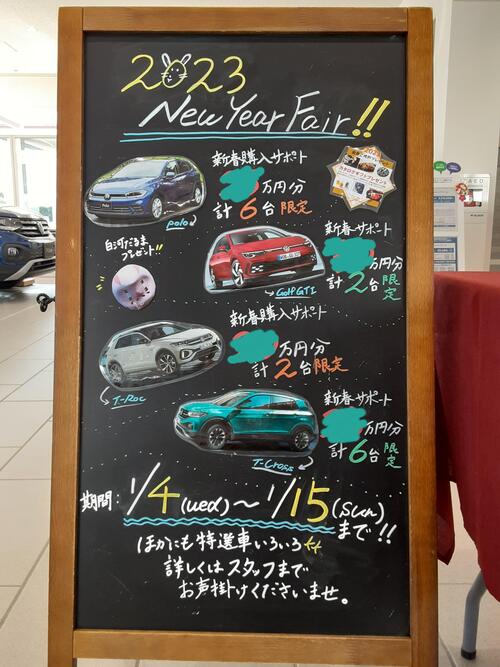 2023
New Year Fair!!
新春購入サポート
万円分
計6台限定
polo
白河だるま
プレゼント!!
新春サポート
万円分
計2台限定
Golf GTI
新春購入サポート
万円分
計2台限定
T-Roc
新春サポート
万円分
計6台限定
T-Cross
期間:1/4(wed)~1/15(Sun)
まで!!
ほかにも特選車いろいろ
詳しくはスタッフまで
お声掛けくださいませ。